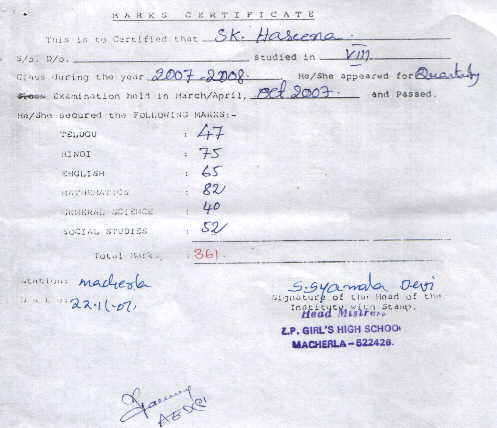 MARKS CERTIFICATE
This is to Certified that SK. Haseena
S/o. D/o. studied in VIII
Class during the year 2007-2008, He/She appeared for Quarterly
Examination held in March/April, Oct 2007 and Passed.
He/She secured the FOLLOWING MARKS:-
TELUGU : 47
HINDI : 75
ENGLISH : 65
MATHEMATICS : 82
GENERAL SCIENCE : 40
SOCIAL STUDIES : 52
Total Marks : 361
Station: macherla
S. Syamala Devi
Signature of the Head of the
Institute with Stamp.
Head Mistress
Z.P. GIRL'S HIGH SCHOOL
MACHERLA-522426.